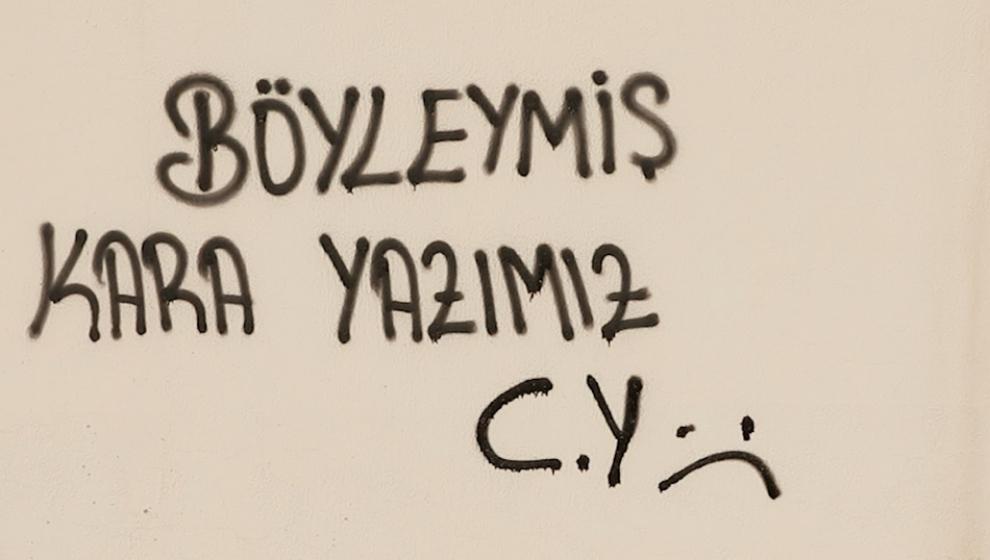 BÖYLEYMİŞ
KARA YAZIMIZ
C.Y :(